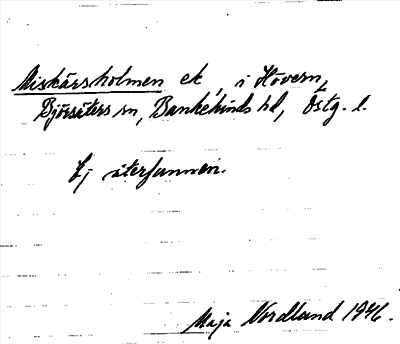 Miskärsholmen ek, i Hövern,
Björsäters sn, Bankekinds hd, Östg. l.
Ej återfunnen.
Maja Nordlund 1946.